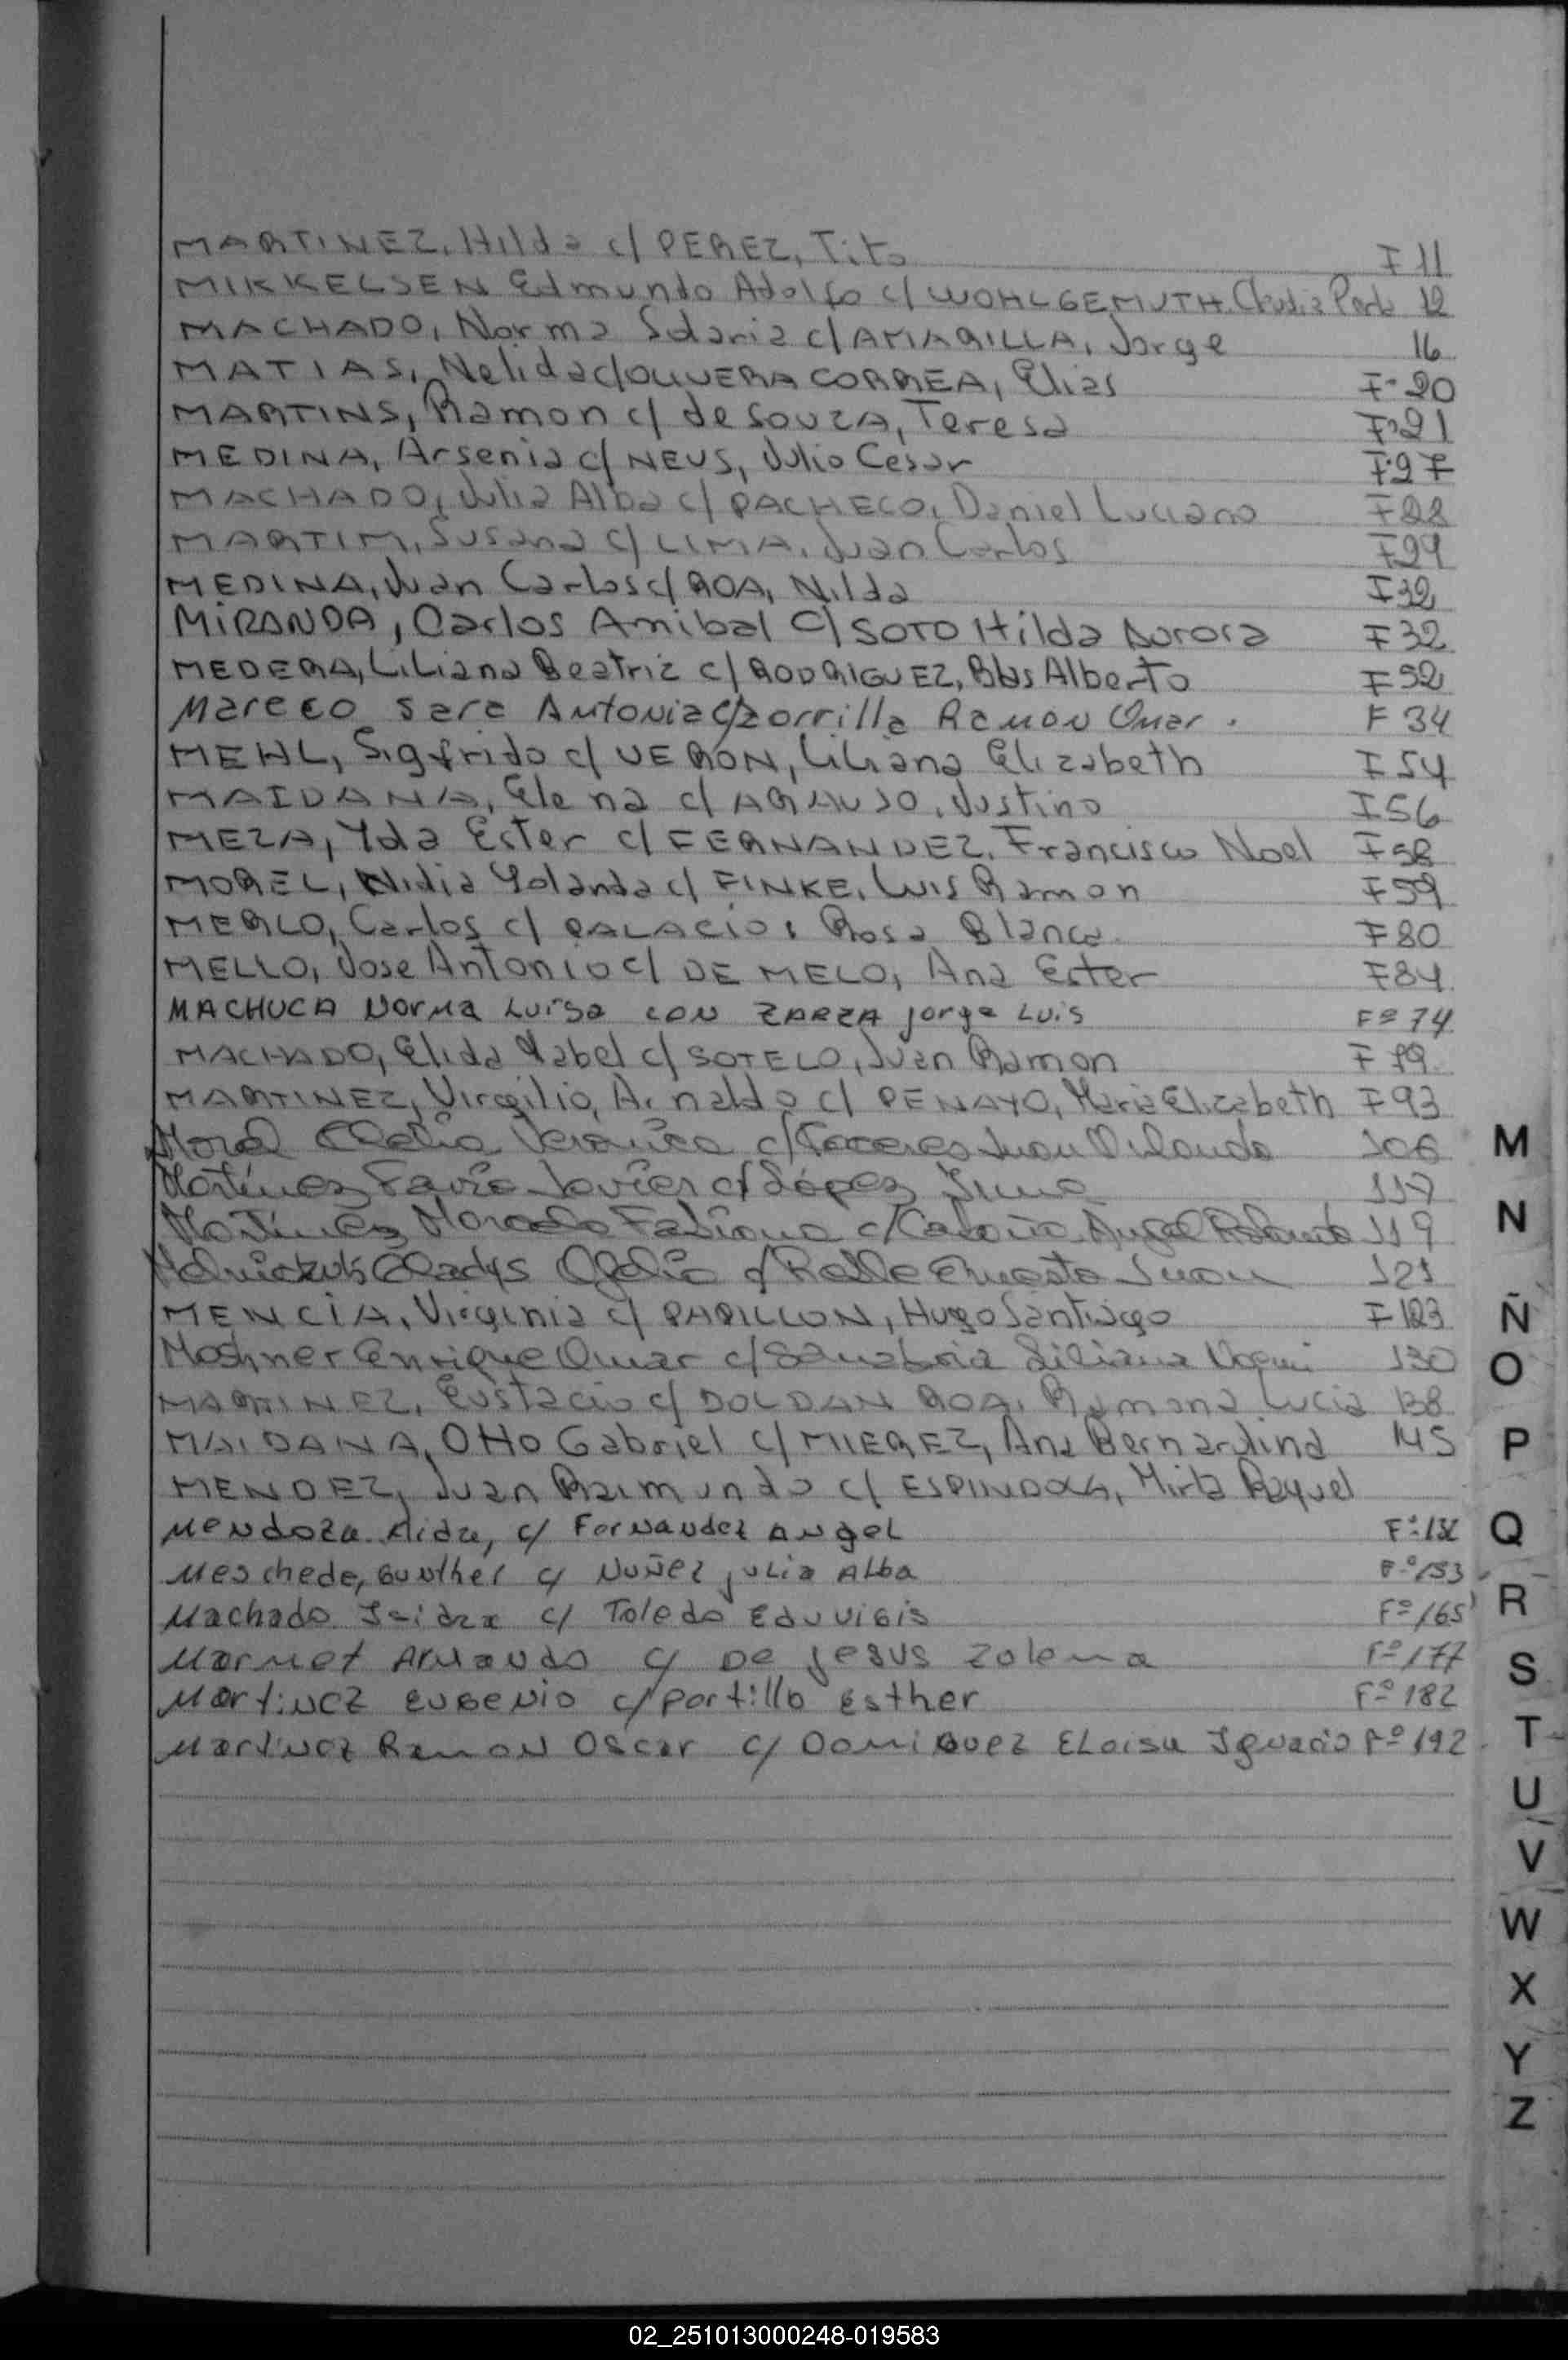 MARTINEZ, Hilda c/ PEREZ, Tito F 11
MIKKELSEN Edmundo Adolfo c/ WOHLGEMUTH, Claudia 12
MACHADO, Norma c/ AMARILLA, Jorge 16
MATIAS, Nelida c/ OLIVERA CORREA, Elias Fº 20
MARTINS, Ramon c/ de SOUZA, Teresa Fº 21
MEDINA, Arsenia c/ NEUS, Julio Cesar Fº 27
MACHADO, Julia Alba c/ PACHECO, Daniel Luciano F 28
MARTIM, Susana c/ LIMA, Juan Carlos F 29
MEDINA, Juan Carlos c/ ROA, Nilda F 32
MiRANDA, Carlos Anibal c/ SOTO Hilda Aurora F 32
MEDERA, Liliana Beatriz c/ RODRIGUEZ, Blas Alberto F 52
Mareco Sara Antonia c/ zorrilla Ramon Omar. F 34
MEHL, Sigfrido c/ VERON, Liliana Elizabeth F 54
MAIDANA, Elena c/ ARAUJO, Justino F 56
MEZA, Yda Ester c/ FERNANDEZ, Francisco Noel F 58
MOREL, Nidia Yolanda c/ FINKE, Luis Ramon F 59
MERLO, Carlos c/ PALACIO, Rosa Blanca F 80
MELLO, Jose Antonio c/ DE MELO, Ana Ester F 84
MACHUCA Norma Luisa con ZARZA Jorge Luis Fº 74
MACHADO, Elida Mabel c/ SOTELO, Juan Ramon F 79
MARTINEZ, Virgilio, Arnaldo c/ PENAYO, Maria Elizabeth F 93
Morel Clelia Verónica c/ Juan Orlando 106
Martínez Favio Javier c/ López Irma 117
Martínez Fabiana c/ Angel 119
Gladys c/ Ernesto Juan 121
MENCIA, Virginia c/ PAPILLON, Hugo Santiago F 123
Moshner Enrique Omar c/ Sanabria Liliana Noemi 130
MARTINEZ, Eustacio c/ DOLDAN ROA, Ramona Lucia 138
MAIDANA, Otto Gabriel c/ MIEREZ, Ana Bernardina 145
MENDEZ, Juan Raimundo c/ ESPINDOLA, Mirta Raquel
Mendoza Aidze, c/ Fernandez Angel
Meschede, Gunther c/ Nuñez Julia Alba Fº 153
Machado c/ Toledo Eduvigis Fº 165
Marmet Armando c/ De Jesus Zolema Fº 177
Martinez Eugenio c/ Portillo Esther Fº 182
Martinez Ramon Oscar c/ Dominguez Eloisa Ignacio Fº 192
M
N
Ñ
O
P
Q
R
S
T
U
V
W
X
Y
Z
02_251013000248-019583